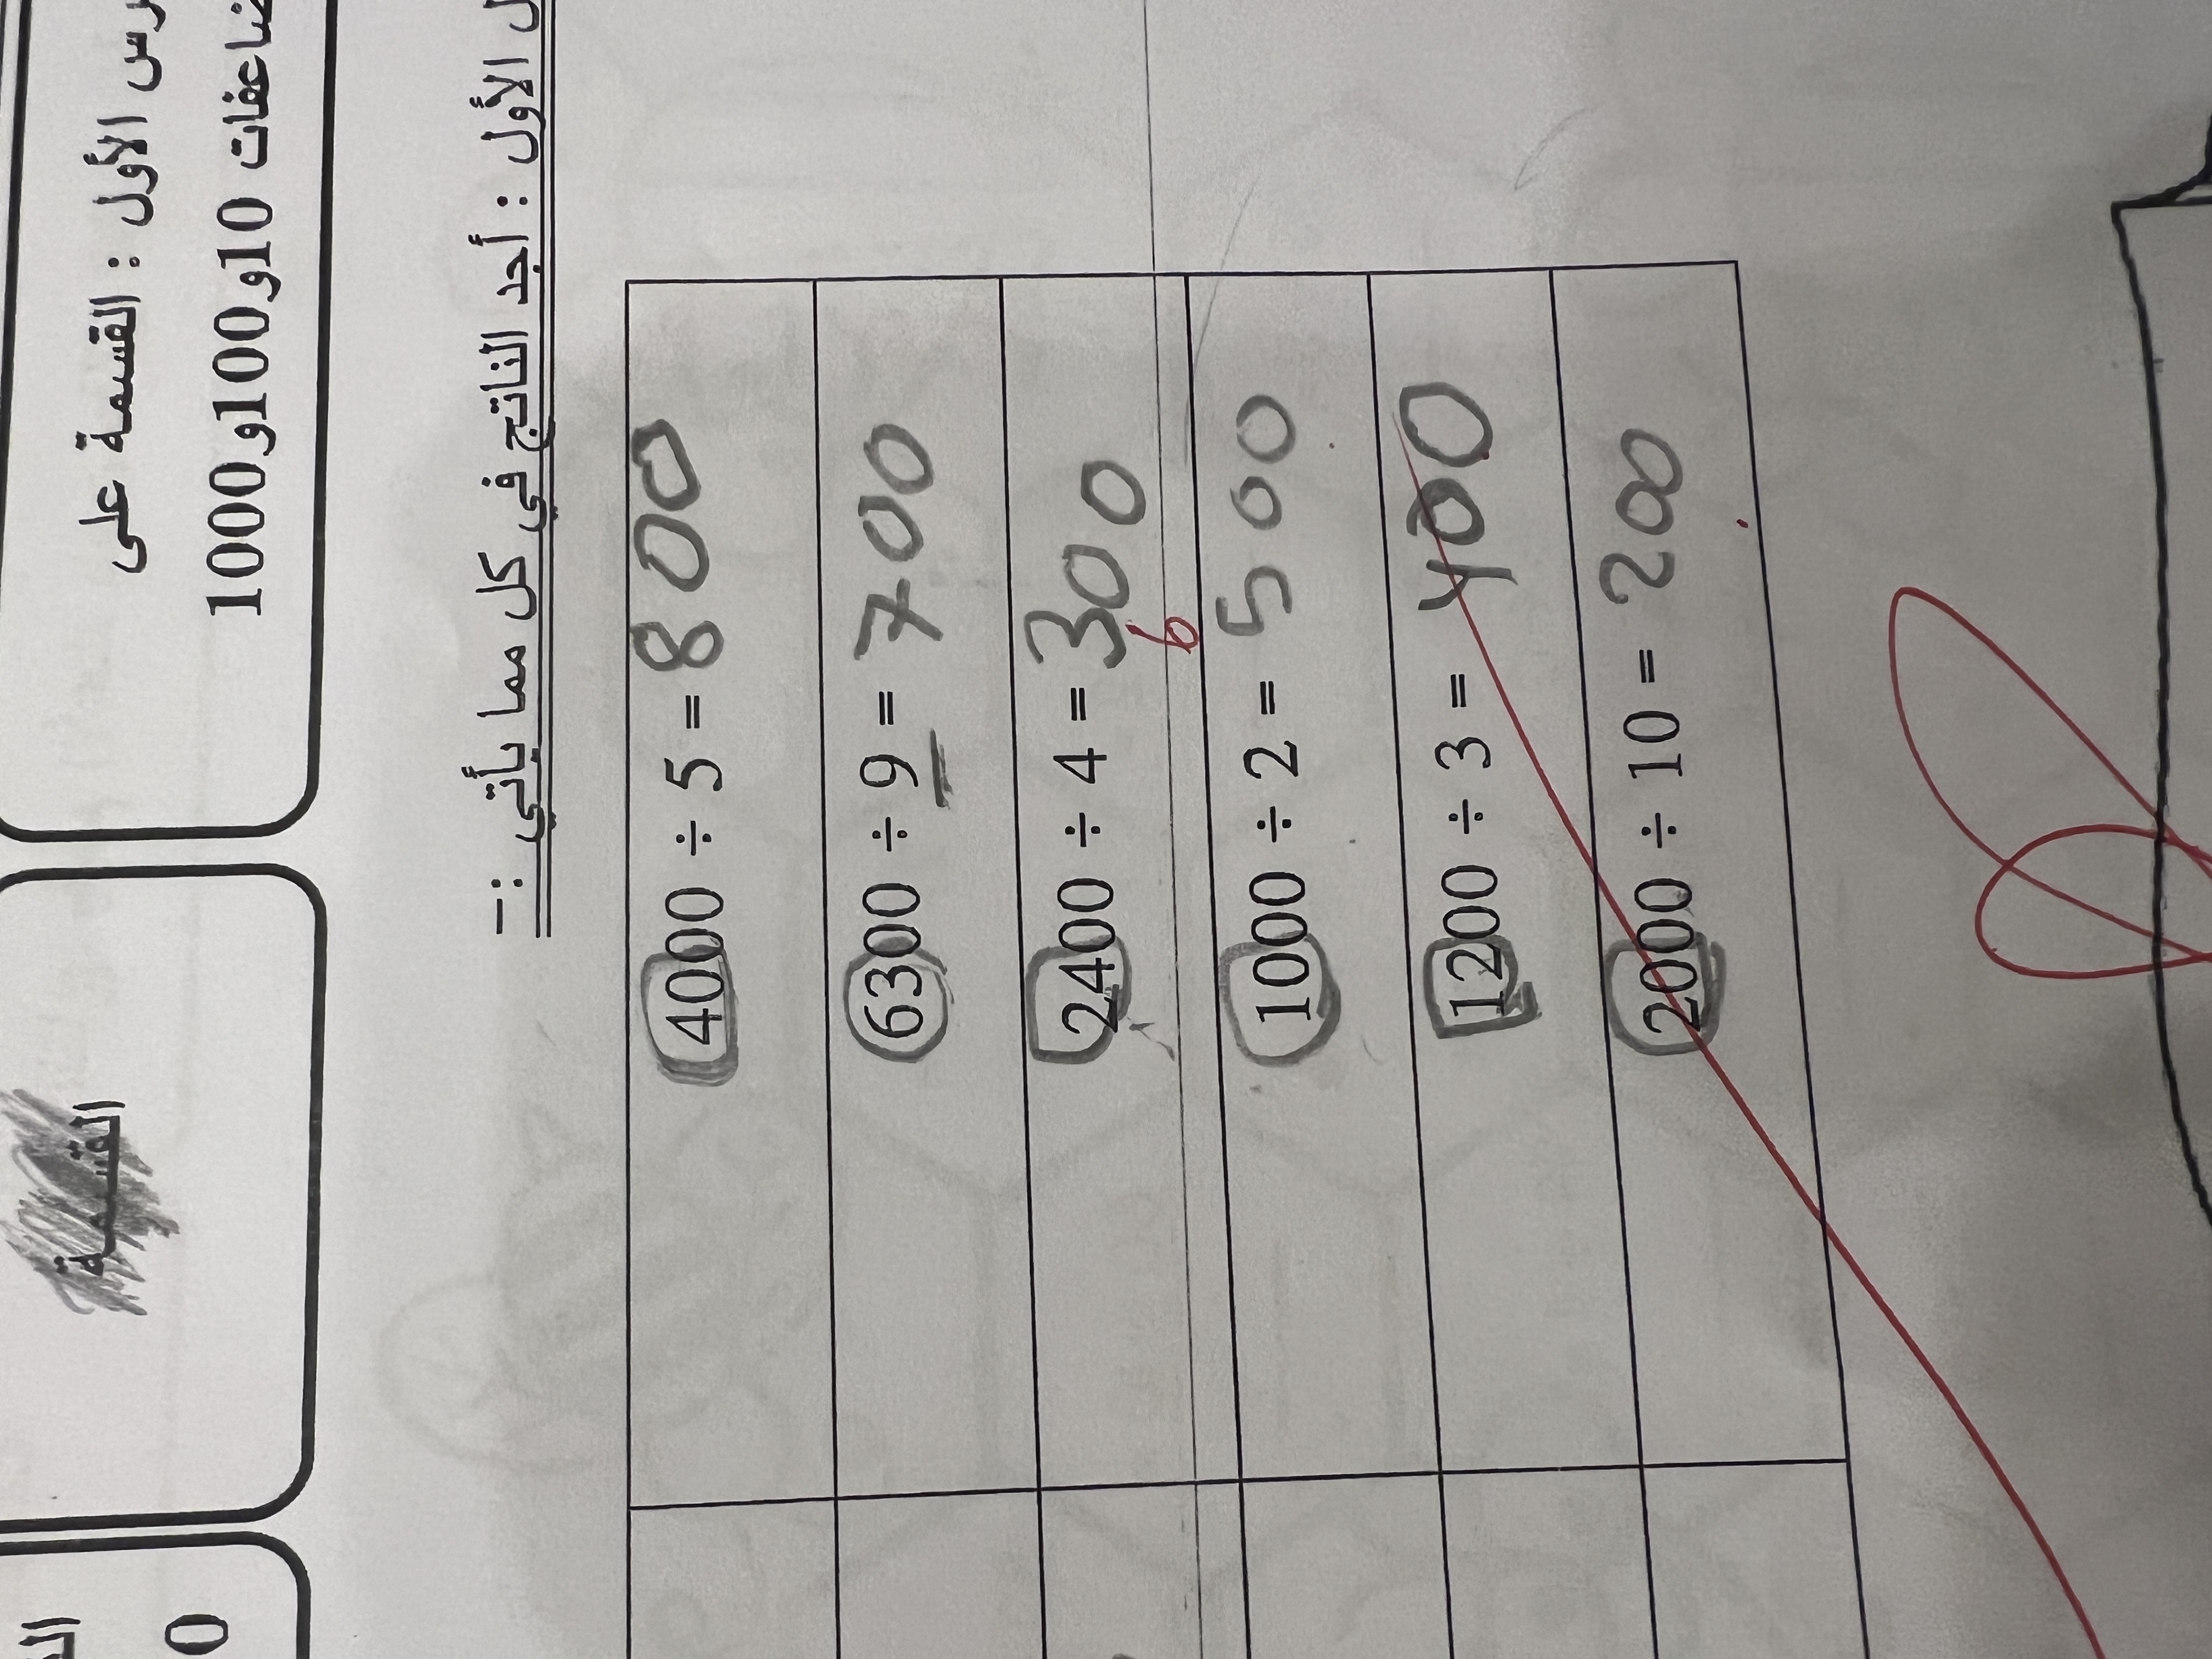 القسمة
الأول : القسمة على
10و100و1000
الأول : أجد الناتج في كل مما يأتي :–
4000 ÷ 5 = 800
6300 ÷ 9 = 700
2400 ÷ 4 = 300
6
1000 ÷ 2 = 500
1200 ÷ 3 = 400
2000 ÷ 10 = 200
0